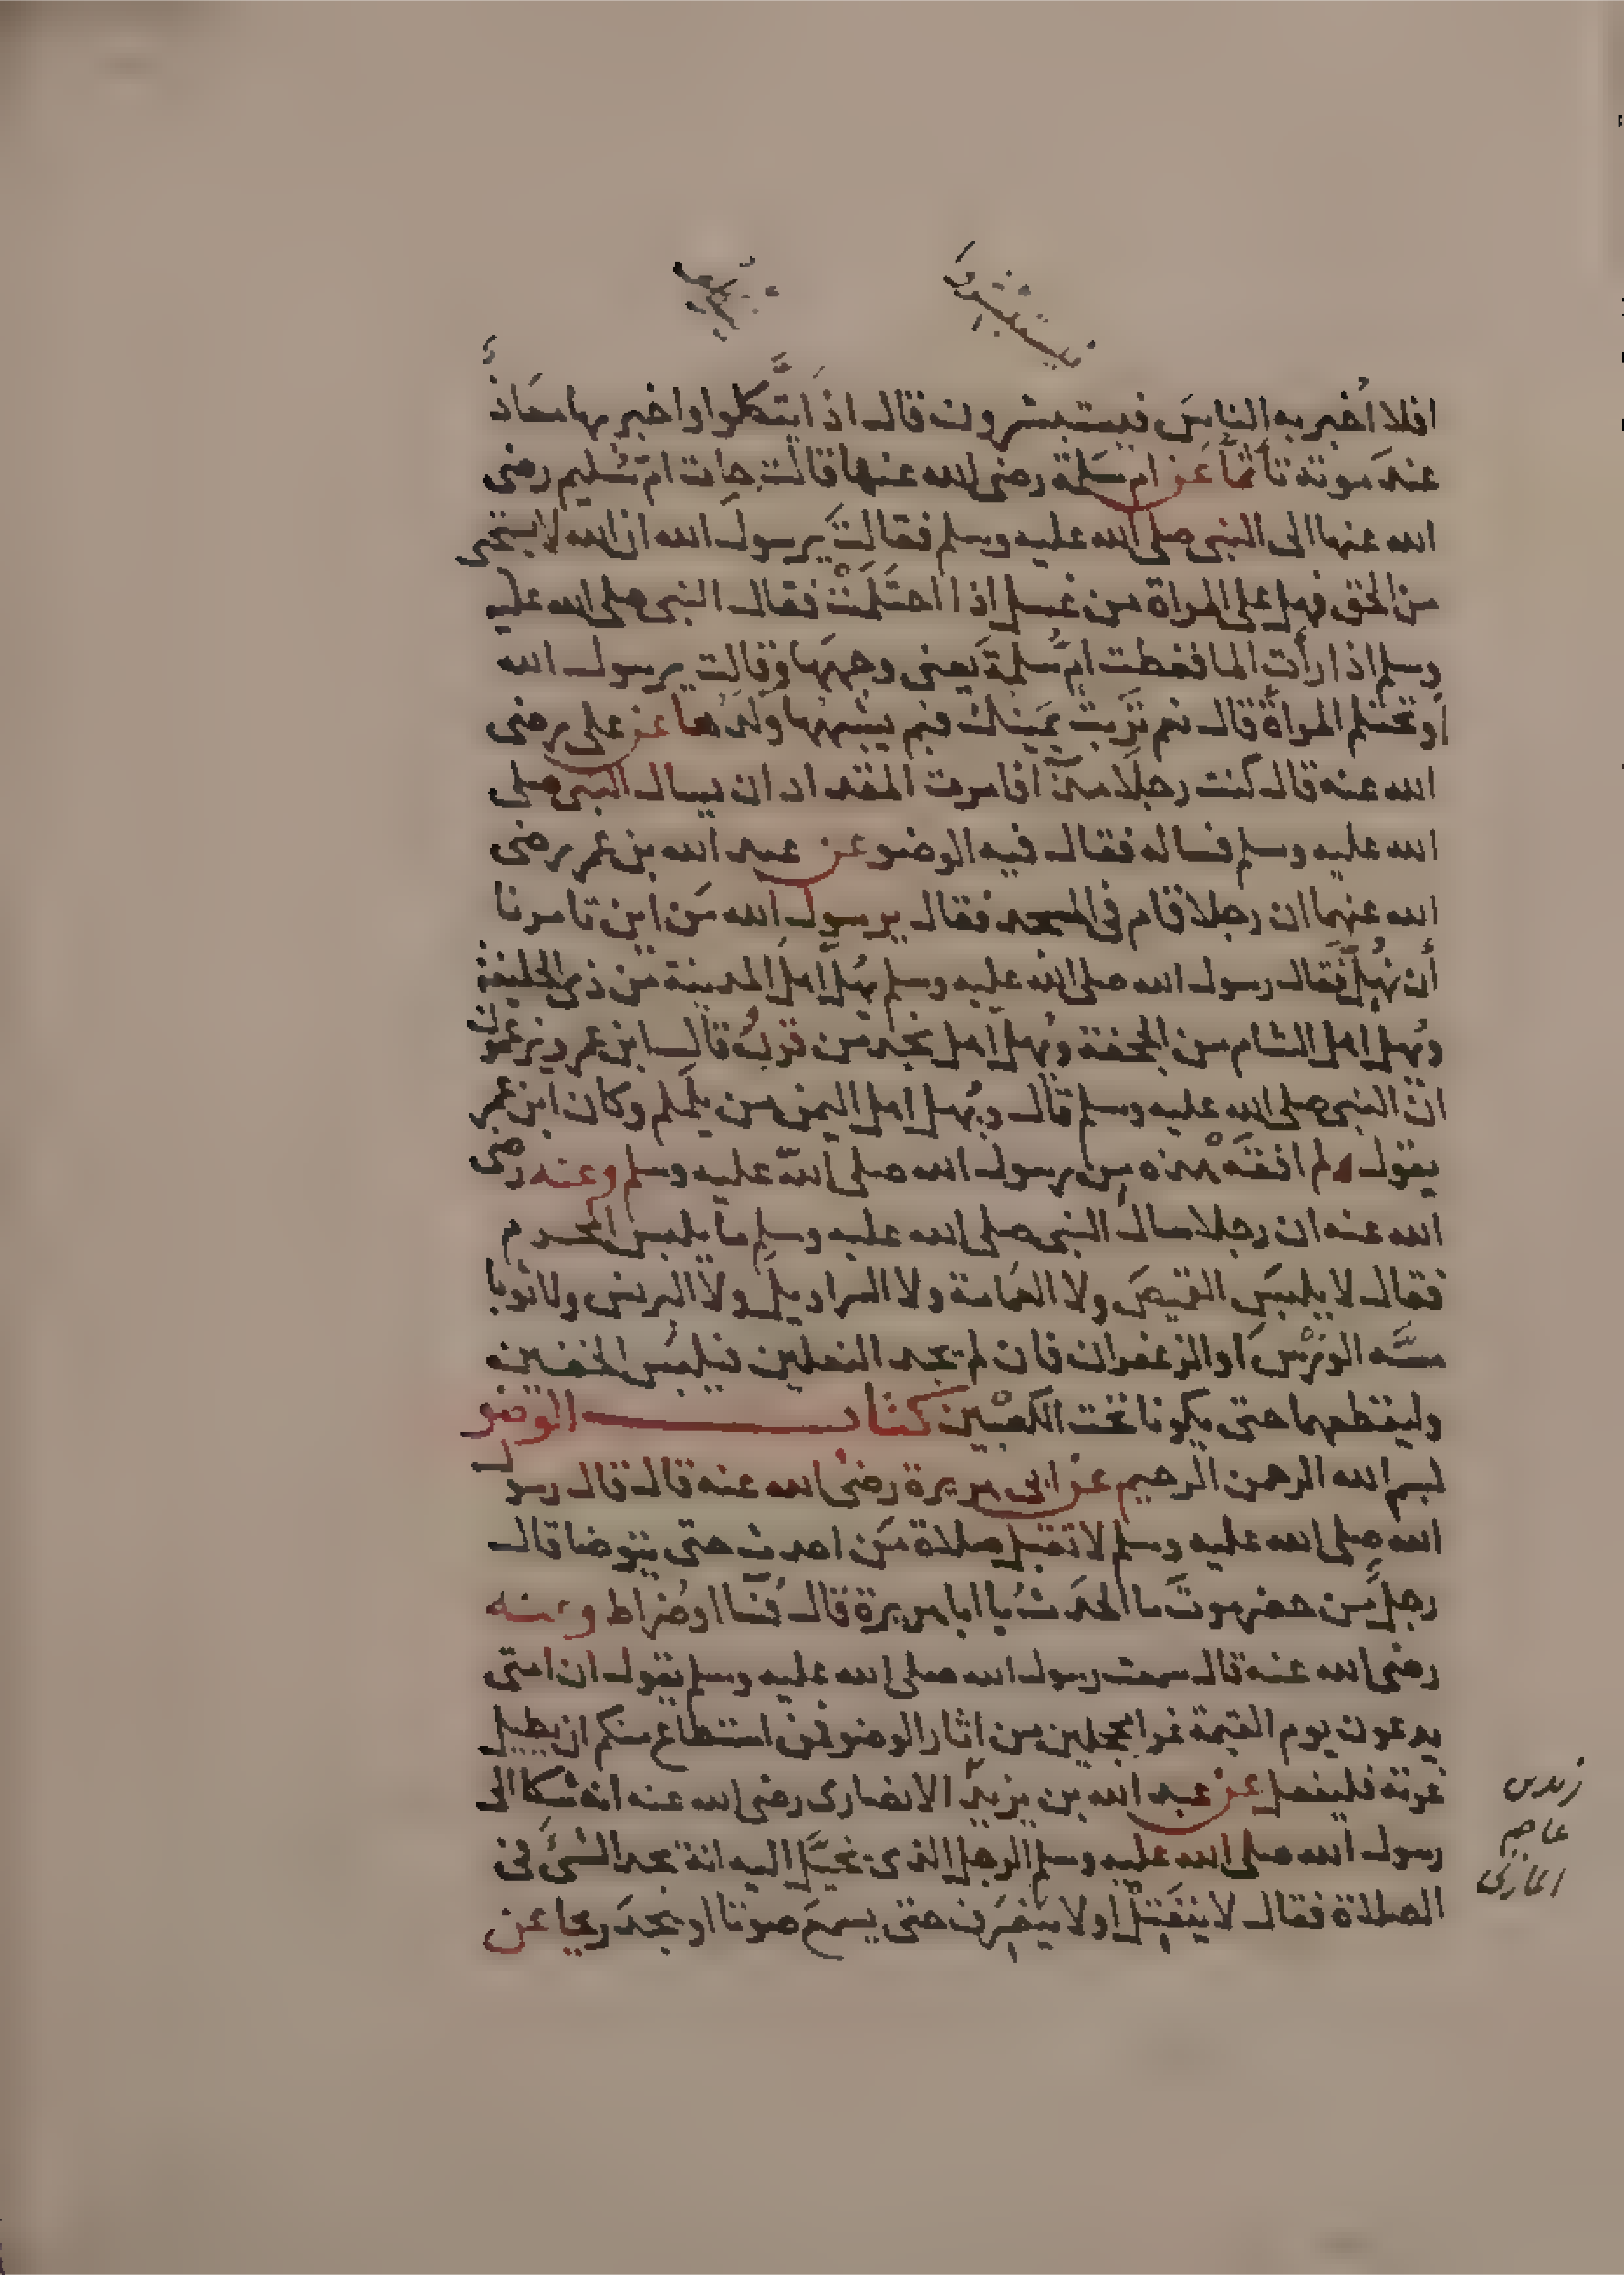 افلا اُخبر به الناسَ فيستبشرون قال اذا يتَّكلوا واخبر بها معَاذٌ
عندَ موته تأثمًا عن ام سَلمة رضى الله عنها قالت جات امّ سُليم رضى
الله عنها الى النبى صلى الله عليه وسلم فقالت يرسولَ الله ان الله لا يستحى
من الحق فهل على المراة من غسل اذا احتَلمَتْ فقال النبى صلى الله عليه
وسلم اذا رأت الما فغطت امُّ سلمة يَعنى وجهَها وقالت يرسول الله
أَوَتحتلم المراةُ قال نعم تَرِبت يمَينك فبم يشبهها ولدُها عن على رضى
الله عنه قال كنت رجلًا مذّآ فامرت المقداد ان يسال النبى صلى
الله عليه وسلم فساله فقال فيه الوضو عن عبد الله بن عمر رضى
الله عنهما ان رجلا قام فى المسجد فقال يرسولَ الله مَن اين تامرنا
أن نُهِلَّ فَقال رسول الله صلى الله عليه وسلم يُهلُّ اهلُ المدينة من ذى الحليفة
ويُهل اهل الشام من الجحفة ويُهل اهل نجد من قرن قال ابن عمر ويزعمون
انّ النبى صلى الله عليه وسلم قال ويُهل اهل اليمن من يلَملم وكان ابن عمر
يقول لم افقَهْ هذه من رسول الله صلى الله عليه وسلم وعنه رضى
الله عنه ان رجلا سال النبى صلى الله عليه وسلم ما يلبس المحرم
فقال لا يلبسَ القميصَ ولا العمَامة ولا السراويل ولا البرنس ولا ثوبا
مسَّه الورْس او الزعفران فان لم تجد النعلين فيلبس الخفين
وليقطعهما حتى يكونا تحت الكعبْين كتاب الوضو
بسم الله الرحمن الرحيم عن ابى هريرة رضى الله عنه قال قال رسول
الله صلى الله عليه وسلم لا تقبل صلاة مَن احدث حتى يتوضا قال
رجل مِّن حضرموتَ ما الحدَثُ يا ابا هريرة قال فُسَآ او ضُراط وعنه
رضى الله عنه قال سمعت رسول الله صلى الله عليه وسلم يقول ان امتى
يدعون يوم القيمة غرا محجلين من اثار الوضو فمن استطاع منكم ان يطيل
غرته فليفعل عن عبد الله بن يزيد الانصارى رضى الله عنه انه شكا الى
رسول الله صلى الله عليه وسلم الرجل الذى يخيَّل اليه انه يجد الشئَ فى
الصلاة فقال لا ينفَتلْ او لا ينصَرف حتى يسمعَ صوتا او يجدَ ريحا عن
زيد بن
عاصم
المازنى